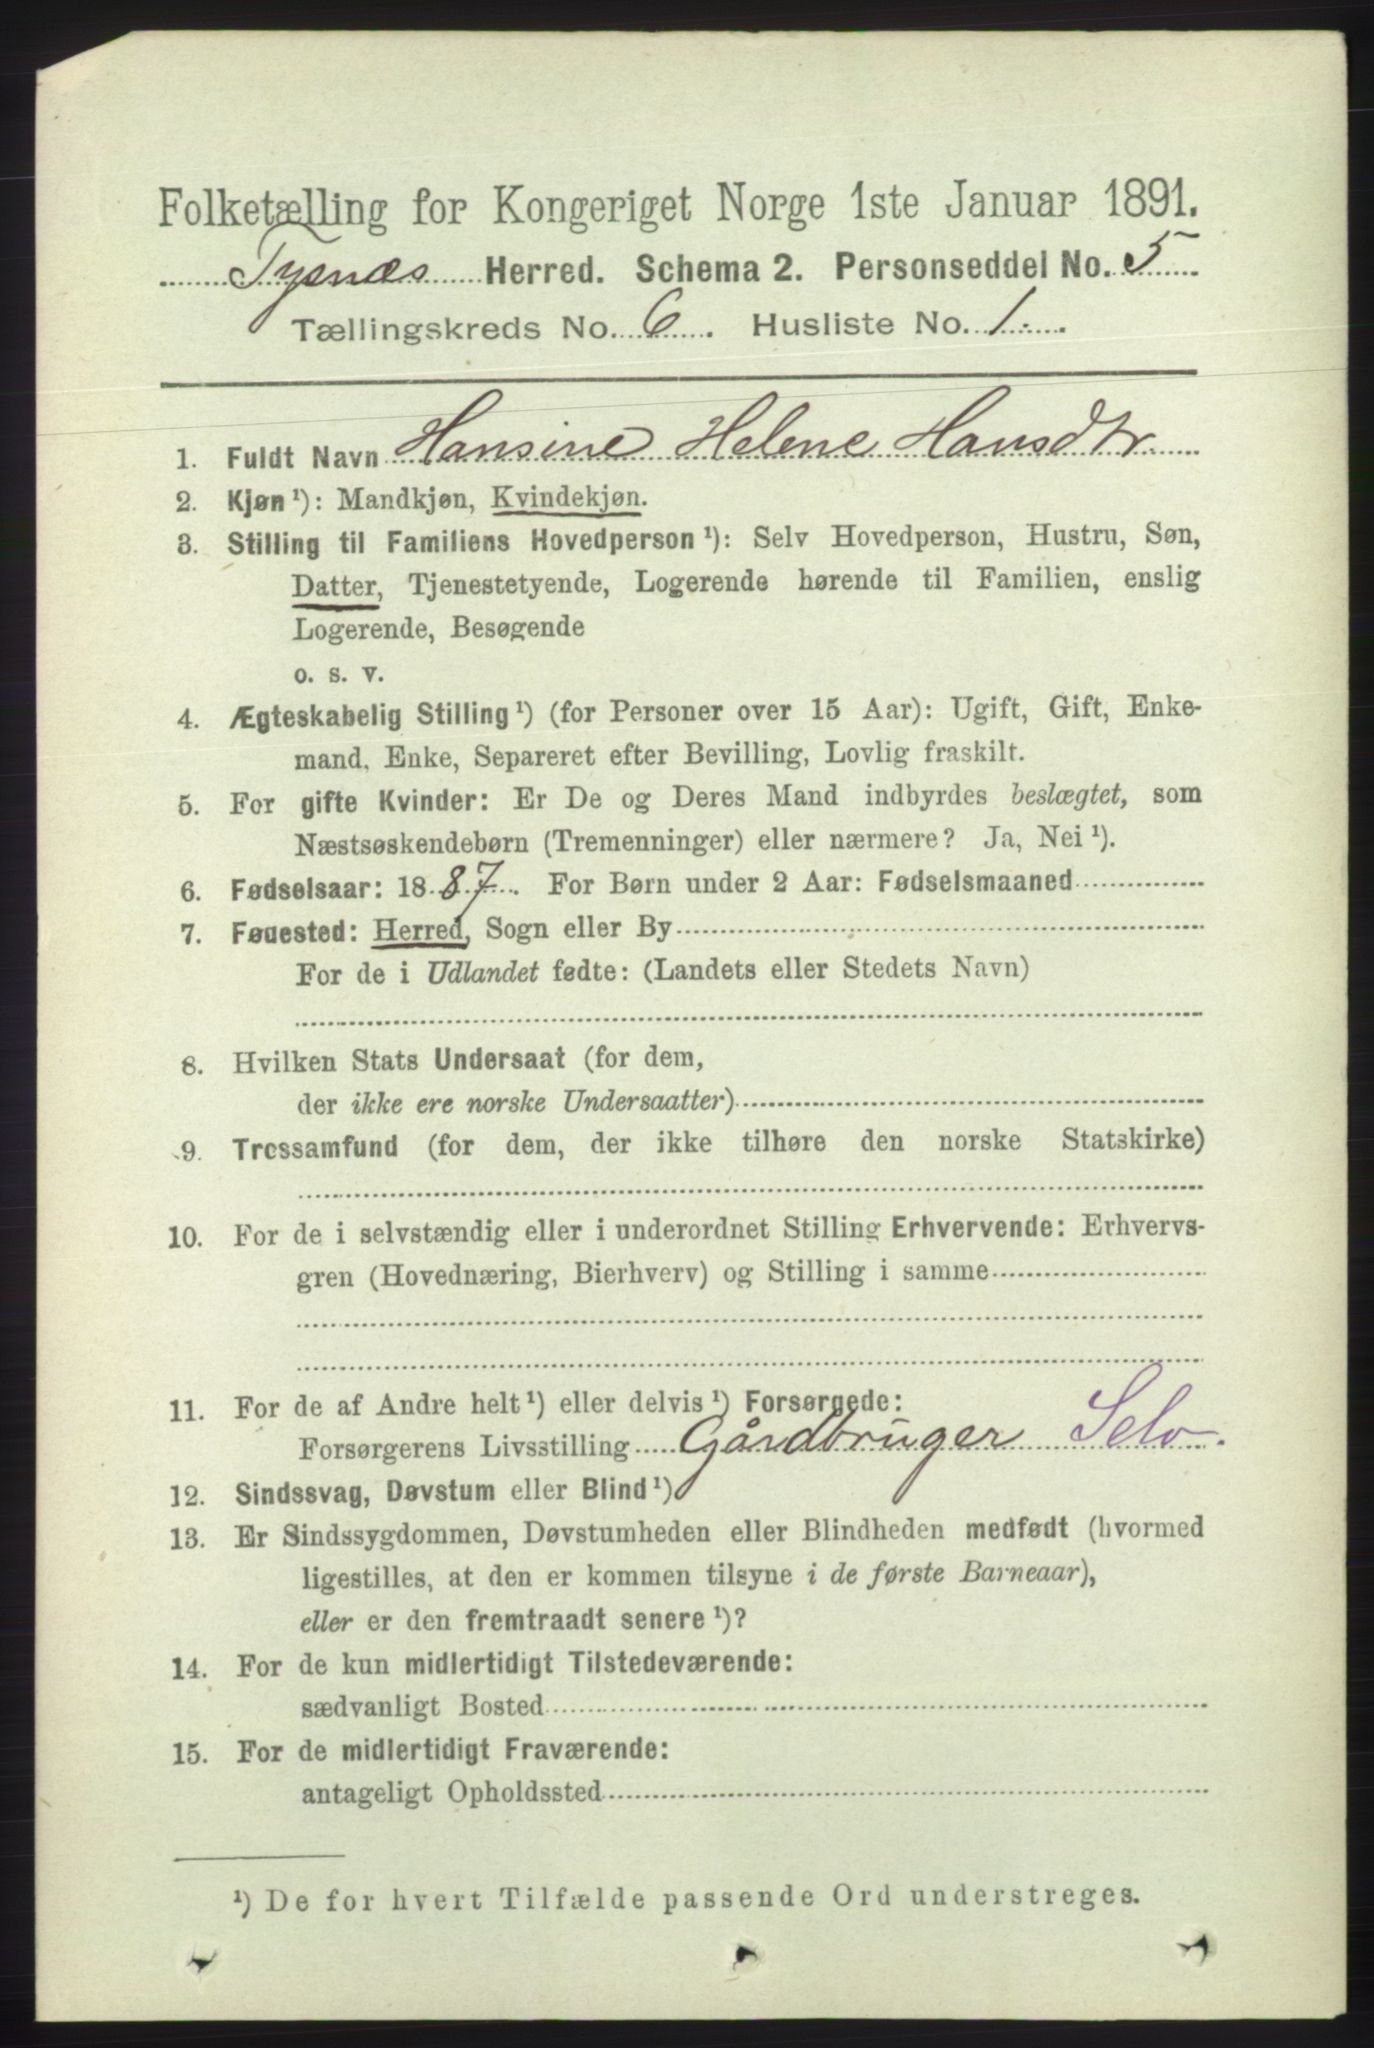 Folketælling for Kongeriget Norge 1ste Januar 1891.
Tysnæs Herred. Schema 2. Personseddel No. 5
Tællingskreds No. 6. Husliste No. 1.
1. Fuldt Navn Hansine Helene Hansdtr.
2. Kjøn ¹): Mandkjøn, Kvindekjøn.
3. Stilling til Familiens Hovedperson ¹): Selv Hovedperson, Hustru, Søn,
Datter, Tjenestetyende, Logerende hørende til Familien, enslig
Logerende, Besøgende
o. s. v.
4. Ægteskabelig Stilling ¹) (for Personer over 15 Aar): Ugift, Gift, Enke-
mand, Enke, Separeret efter Bevilling, Lovlig fraskilt.
5. For gifte Kvinder: Er De og Deres Mand indbyrdes beslægtet, som
Næstsøskendebørn (Tremenninger) eller nærmere? Ja, Nei ¹).
6. Fødselsaar: 1887. For Børn under 2 Aar: Fødselsmaaned
7. Fødested: Herred, Sogn eller By
For de i Udlandet fødte: (Landets eller Stedets Navn)
8. Hvilken Stats Undersaat (for dem,
der ikke ere norske Undersaatter)
9. Trossamfund (for dem, der ikke tilhøre den norske Statskirke)
10. For de i selvstændig eller i underordnet Stilling Erhvervende: Erhvervs-
gren (Hovednæring, Bierhverv) og Stilling i samme
11. For de af Andre helt ¹) eller delvis ¹) Forsørgede:
Forsørgerens Livsstilling Gårdbruger Selv.
12. Sindssvag, Døvstum eller Blind ¹)
13. Er Sindssygdommen, Døvstumheden eller Blindheden medfødt (hvormed
ligestilles, at den er kommen tilsyne i de første Barneaar),
eller er den fremtraadt senere ¹)?
14. For de kun midlertidigt Tilstedeværende:
sædvanligt Bosted
15. For de midlertidigt Fraværende:
antageligt Opholdssted
¹) De for hvert Tilfælde passende Ord understreges.